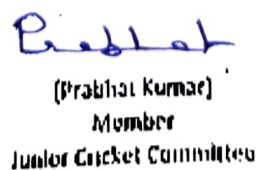 Prabhat
(Prabhat Kumar)
Member
Junior Cricket Committee